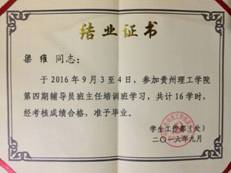 结业证书
梁维 同志：
于2016年9月3至4日，参加贵州理工学院
第四期辅导员班主任培训班学习，共计16学时，
经考核成绩合格，准予毕业。
学生工作部（处）
二〇一六年九月